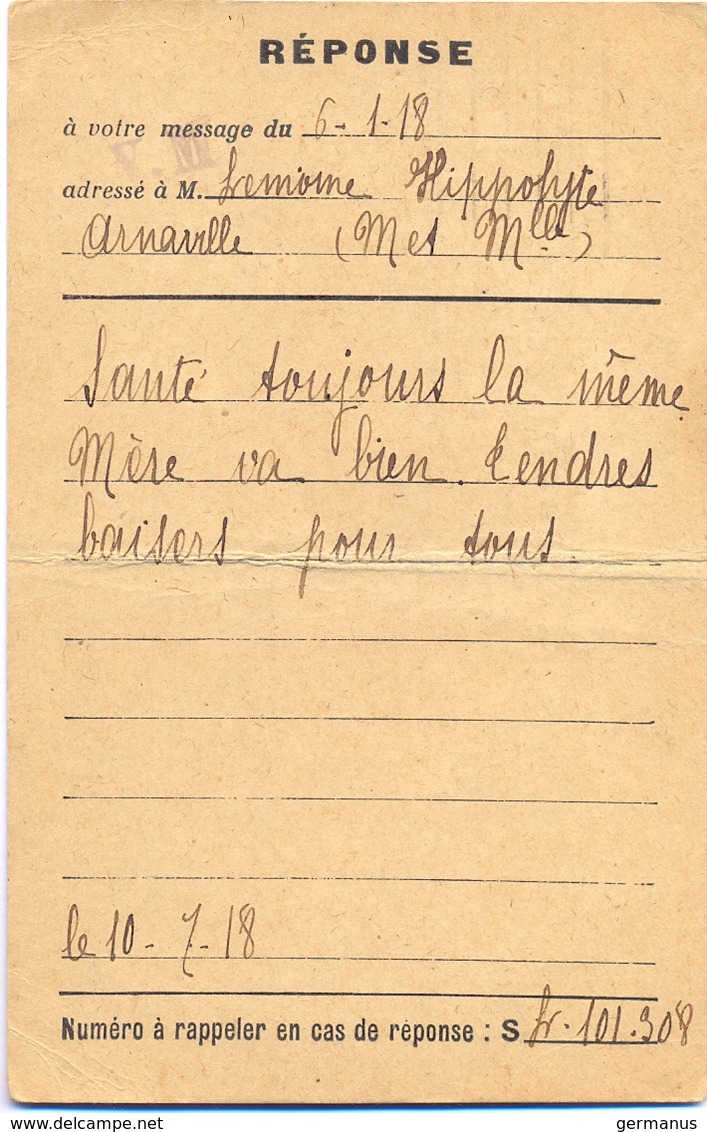 RÉPONSE
à votre message du 6-1-18
F M
adressé à M. Lemoine Hippolyte
Arnaville (M et Mlle)
Santé toujours la même
Mère va bien. Tendres
baisers pour tous.
le 10-7-18
Numéro à rappeler en cas de réponse : S fr. 101.308
delcampe.net
germanus